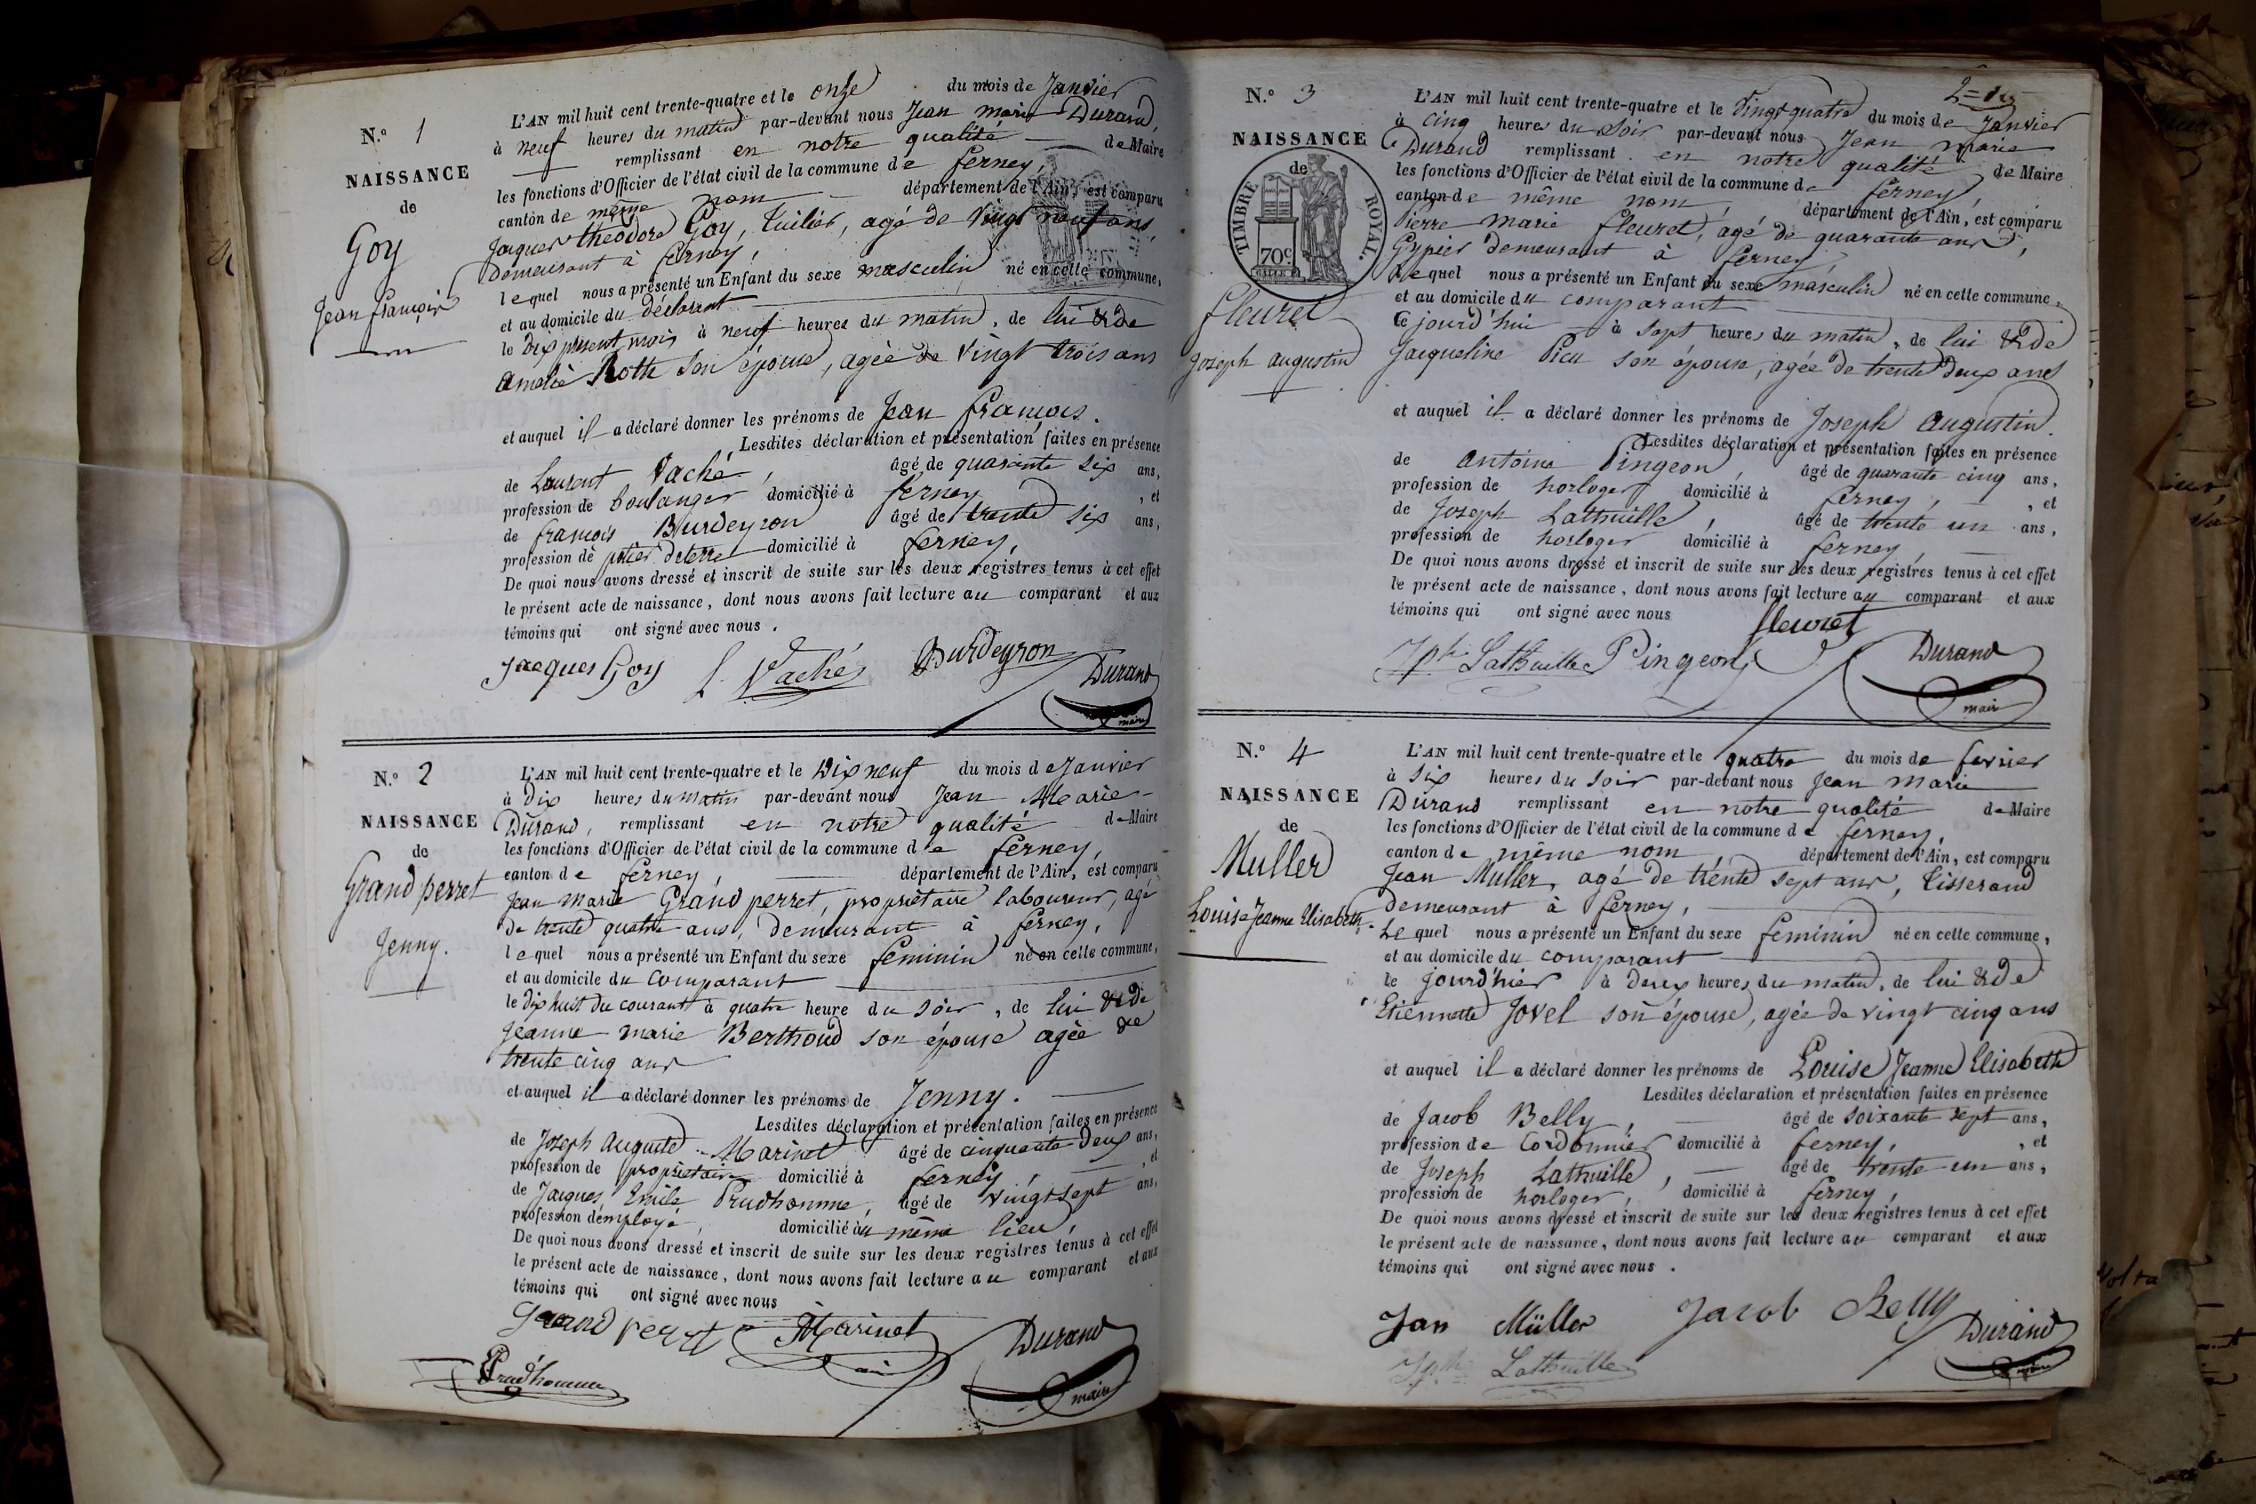 N.° 1
NAISSANCE
de
Goy
Jean françois
L'AN mil huit cent trente-quatre et le onze du mois de Janvier
à neuf heures du matin par-devant nous Jean marie Durand,
remplissant en notre qualité de Maire
les fonctions d'Officier de l'état civil de la commune de ferney,
canton de même nom département de l'Ain, est comparu
Jaques théodore Goy, tuilier, agé de vingt neuf ans,
demeurant à ferney,
lequel nous a présenté un Enfant du sexe masculin né en cette commune,
et au domicile du déclarant
le dix présent mois à neuf heures du matin, de lui & de
amelie Roth son épouse, agée de vingt trois ans
et auquel il a déclaré donner les prénoms de Jean françois.
Lesdites déclaration et présentation faites en présence
de Laurent Vaché, âgé de quarante six ans,
profession de boulanger domicilié à ferney, et
de françois Burdeyron âgé de trente six ans,
profession de potier de terre domicilié à ferney,
De quoi nous avons dressé et inscrit de suite sur les deux registres tenus à cet effet
le présent acte de naissance, dont nous avons fait lecture au comparant et aux
témoins qui ont signé avec nous.
Jacques Goy L. Vaché Burdeyron Durand
maire
N.° 2
NAISSANCE
de
Grand perret
Jenny.
L'AN mil huit cent trente-quatre et le Dix neuf du mois de Janvier
à Dix heures du matin par-devant nous Jean Marie
Durand, remplissant en notre qualité de Maire
les fonctions d'Officier de l'état civil de la commune de ferney,
canton de ferney, département de l'Ain, est comparu
Jean marie Grand perret, propriétaire laboureur, agé
de trente quatre ans, demeurant à ferney,
lequel nous a présenté un Enfant du sexe feminin né en cette commune,
et au domicile du comparant
le dix huit du courant à quatre heure du soir, de lui & de
Jeanne marie Berthoud son épouse agée de
trente cinq ans
et auquel il a déclaré donner les prénoms de Jenny.
Lesdites déclaration et présentation faites en présence
de Joseph auguste Marinet âgé de cinquante deux ans,
profession de propriétaire domicilié à ferney, et
de Jacques Emile Prudhomme, âgé de vingt sept ans,
profession d'employé, domicilié au même lieu,
De quoi nous avons dressé et inscrit de suite sur les deux registres tenus à cet effet
le présent acte de naissance, dont nous avons fait lecture au comparant et aux
témoins qui ont signé avec nous
Grand perret Marinet Durand
maire
Prudhomme
N.° 3
NAISSANCE
de
TIMBRE ROYAL.
70c.
fleuret
Joseph augustin
L'AN mil huit cent trente-quatre et le vingt quatre du mois de Janvier
à cinq heures du soir par-devant nous Jean marie
Durand remplissant en notre qualité de Maire
les fonctions d'Officier de l'état civil de la commune de ferney,
canton de même nom, département de l'Ain, est comparu
Pierre marie fleuret, agé de quarante ans,
Gypier demeurant à ferney
Lequel nous a présenté un Enfant du sexe masculin né en cette commune,
et au domicile du comparant
Ce jourd'hui à sept heures du matin, de lui & de
Jacqueline Picu son épouse, agée de trente deux ans
et auquel il a déclaré donner les prénoms de Joseph augustin.
Lesdites déclaration et présentation faites en présence
de antoine Pingeon, âgé de quarante cinq ans,
profession de horloger domicilié à ferney, et
de Joseph Lathuille, âgé de trente un ans,
profession de horloger domicilié à ferney,
De quoi nous avons dressé et inscrit de suite sur les deux registres tenus à cet effet
le présent acte de naissance, dont nous avons fait lecture au comparant et aux
témoins qui ont signé avec nous
fleuret
Jph. Lathuille Pingeon Durand
maire
N.° 4
NAISSANCE
de
Muller
Louise Jeanne Elisabeth.
L'AN mil huit cent trente-quatre et le quatre du mois de fevrier
à six heures du soir par-devant nous Jean marie
Durand remplissant en notre qualité de Maire
les fonctions d'Officier de l'état civil de la commune de ferney,
canton de même nom département de l'Ain, est comparu
Jean Muller, agé de trente sept ans, tisserand
demeurant à ferney,
Lequel nous a présenté un Enfant du sexe feminin né en cette commune,
et au domicile du comparant
le jourd'hier à deux heures du matin, de lui & de
Etiennette Jovel son épouse, agée de vingt cinq ans
et auquel il a déclaré donner les prénoms de Louise Jeanne Elisabeth
Lesdites déclaration et présentation faites en présence
de Jacob Belly, âgé de soixante sept ans,
profession de cordonnier domicilié à ferney, et
de Joseph Lathuille, âgé de trente un ans,
profession de horloger, domicilié à ferney,
De quoi nous avons dressé et inscrit de suite sur les deux registres tenus à cet effet
le présent acte de naissance, dont nous avons fait lecture au comparant et aux
témoins qui ont signé avec nous.
Jan Müller Jacob Belly Durand
maire
Jph. Lathuille